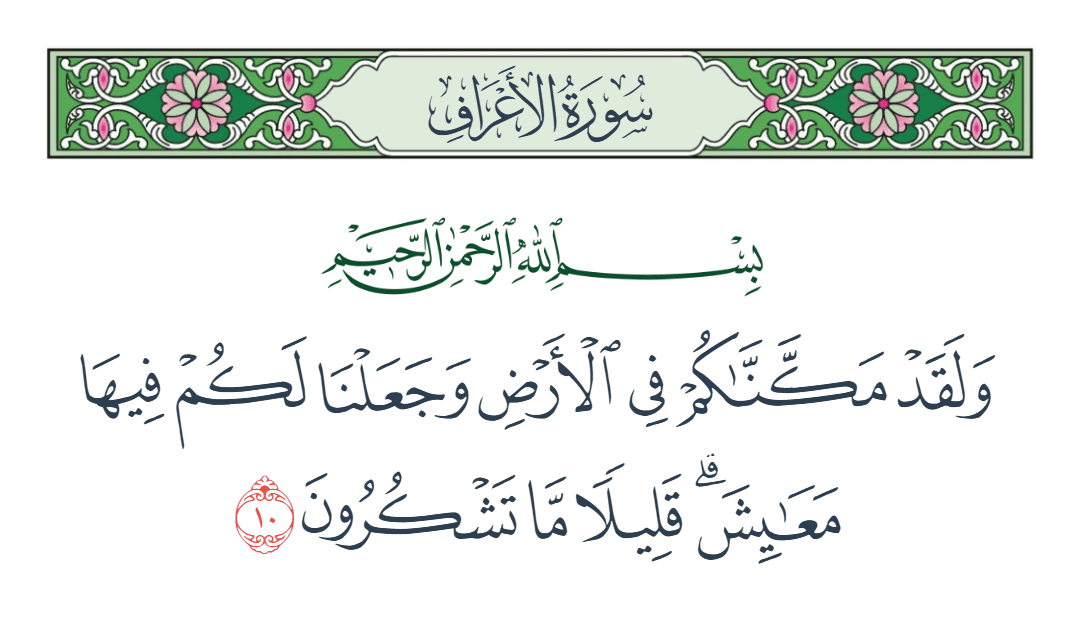 سُورَةُ الأَعْرَافِ
بِسْمِ ٱللَّهِ ٱلرَّحْمَٰنِ ٱلرَّحِيمِ
وَلَقَدْ مَكَّنَّٰكُمْ فِي ٱلْأَرْضِ وَجَعَلْنَا لَكُمْ فِيهَا
مَعَٰيِشَۗ قَلِيلًا مَّا تَشْكُرُونَ ١٠